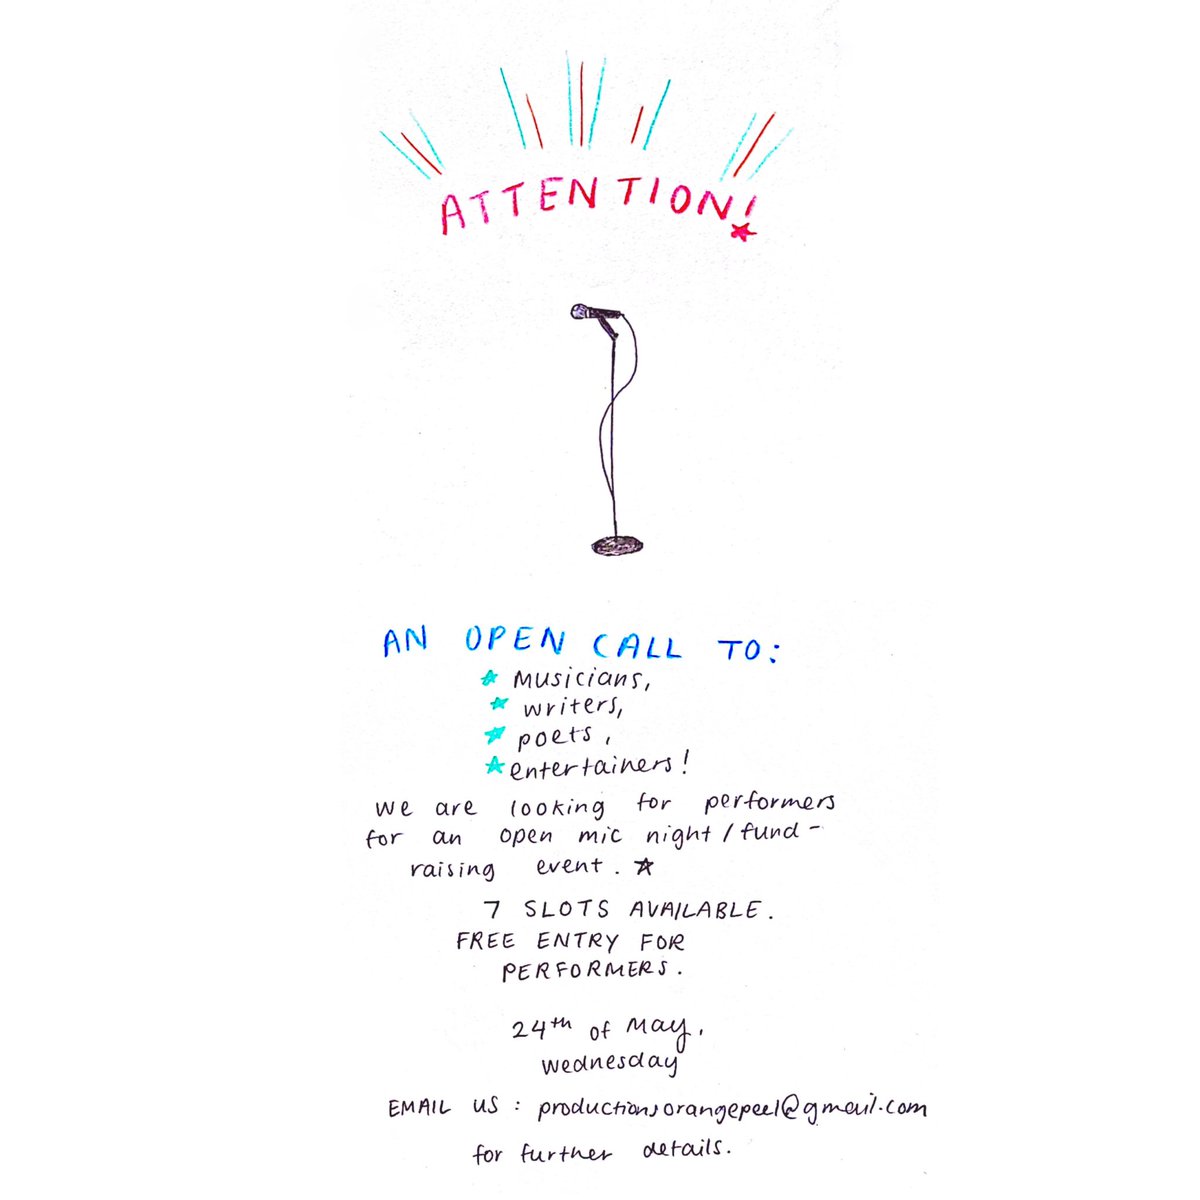 ATTENTION!
AN OPEN CALL TO:
musicians,
writers,
poets,
entertainers!
we are looking for performers
for an open mic night/fund-
raising event.
7 SLOTS AVAILABLE.
FREE ENTRY FOR
PERFORMERS.
24th of May,
Wednesday
EMAIL US: productionsorangepeel@gmail.com
for further details.